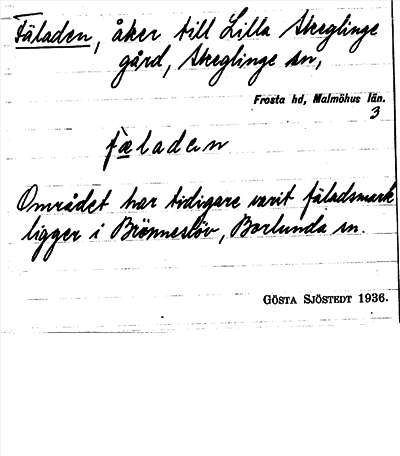 Fäladen, åker till Lilla Skeglinge
gård, Skeglinge sn,
Frosta hd, Malmöhus län.
3
fæladen
Området har tidigare varit fäladsmark
ligger i Brönneslöv, Borlunda sn.
GÖSTA SJÖSTEDT 1936.